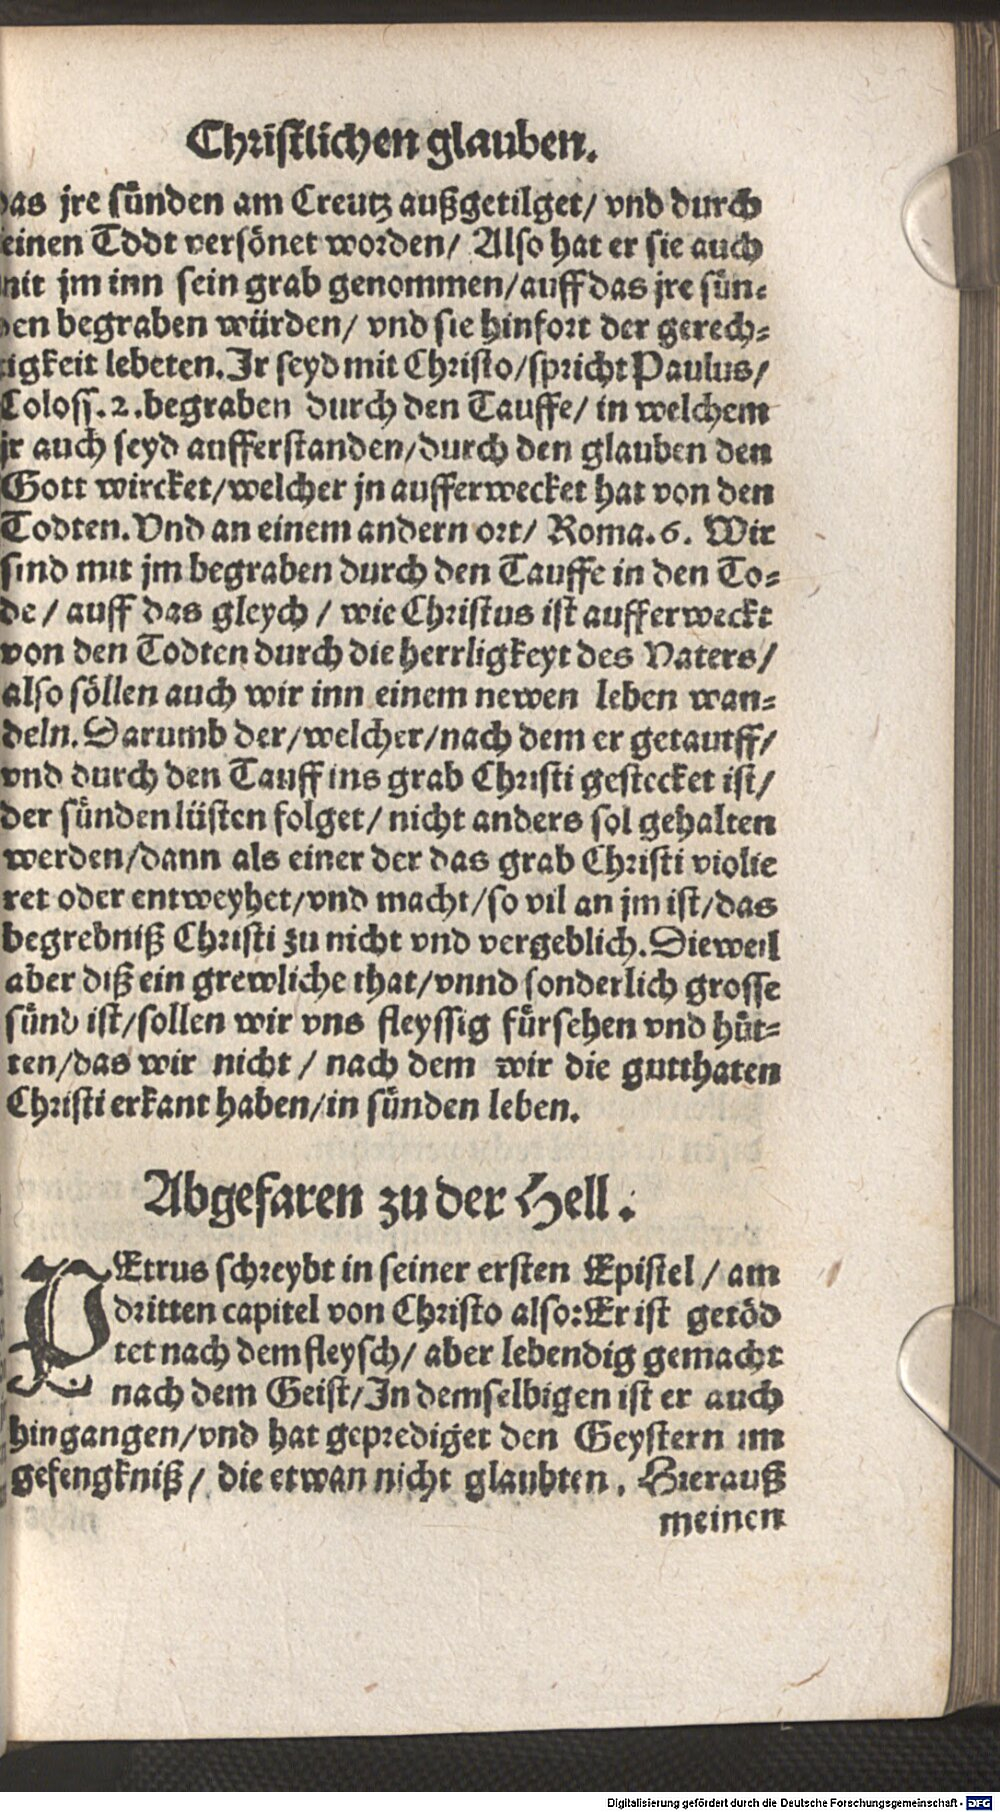 Christlichen glauben.
das jre sünden am Creutz außgetilget/ vnd durch
seinen Todt versönet worden/ Also hat er sie auch
mit jm inn sein grab genommen/auff das jre sün-
den begraben würden/ vnd sie hinfort der gerech-
tigkeit lebeten. Ir seyd mit Christo/spricht Paulus/
Coloss. 2. begraben durch den Tauffe/ in welchem
jr auch seyd aufferstanden/durch den glauben den
Gott wircket/welcher jn aufferwecket hat von den
Todten. Vnd an einem andern ort/ Roma. 6. Wir
sind mit jm begraben durch den Tauffe in den To-
de/ auff das gleych/ wie Christus ist aufferweckt
von den Todten durch die herrligkeyt des Vaters/
also söllen auch wir inn einem newen leben wan-
deln. Darumb der/welcher/nach dem er getautff/
vnd durch den Tauff ins grab Christi gestecket ist/
der sünden lüsten folget/ nicht anders sol gehalten
werden/dann als einer der das grab Christi violie
ret oder entweyhet/vnd macht/so vil an jm ist/das
begrebniß Christi zu nicht vnd vergeblich. Dieweil
aber diß ein grewliche that/vnnd sonderlich grosse
sünd ist/sollen wir vns fleyssig fürsehen vnd hüt-
ten/das wir nicht/ nach dem wir die gutthaten
Christi erkant haben/in sünden leben.
Abgefaren zu der Hell.
PEtrus schreybt in seiner ersten Epistel/ am
dritten capitel von Christo also: Er ist getöd
tet nach dem fleysch/ aber lebendig gemacht
nach dem Geist/In demselbigen ist er auch
hingangen/vnd hat geprediget den Geystern im
gefengkniß/ die etwan nicht glaubten. Hierauß
meinen
Digitalisierung gefördert durch die Deutsche Forschungsgemeinschaft - DFG